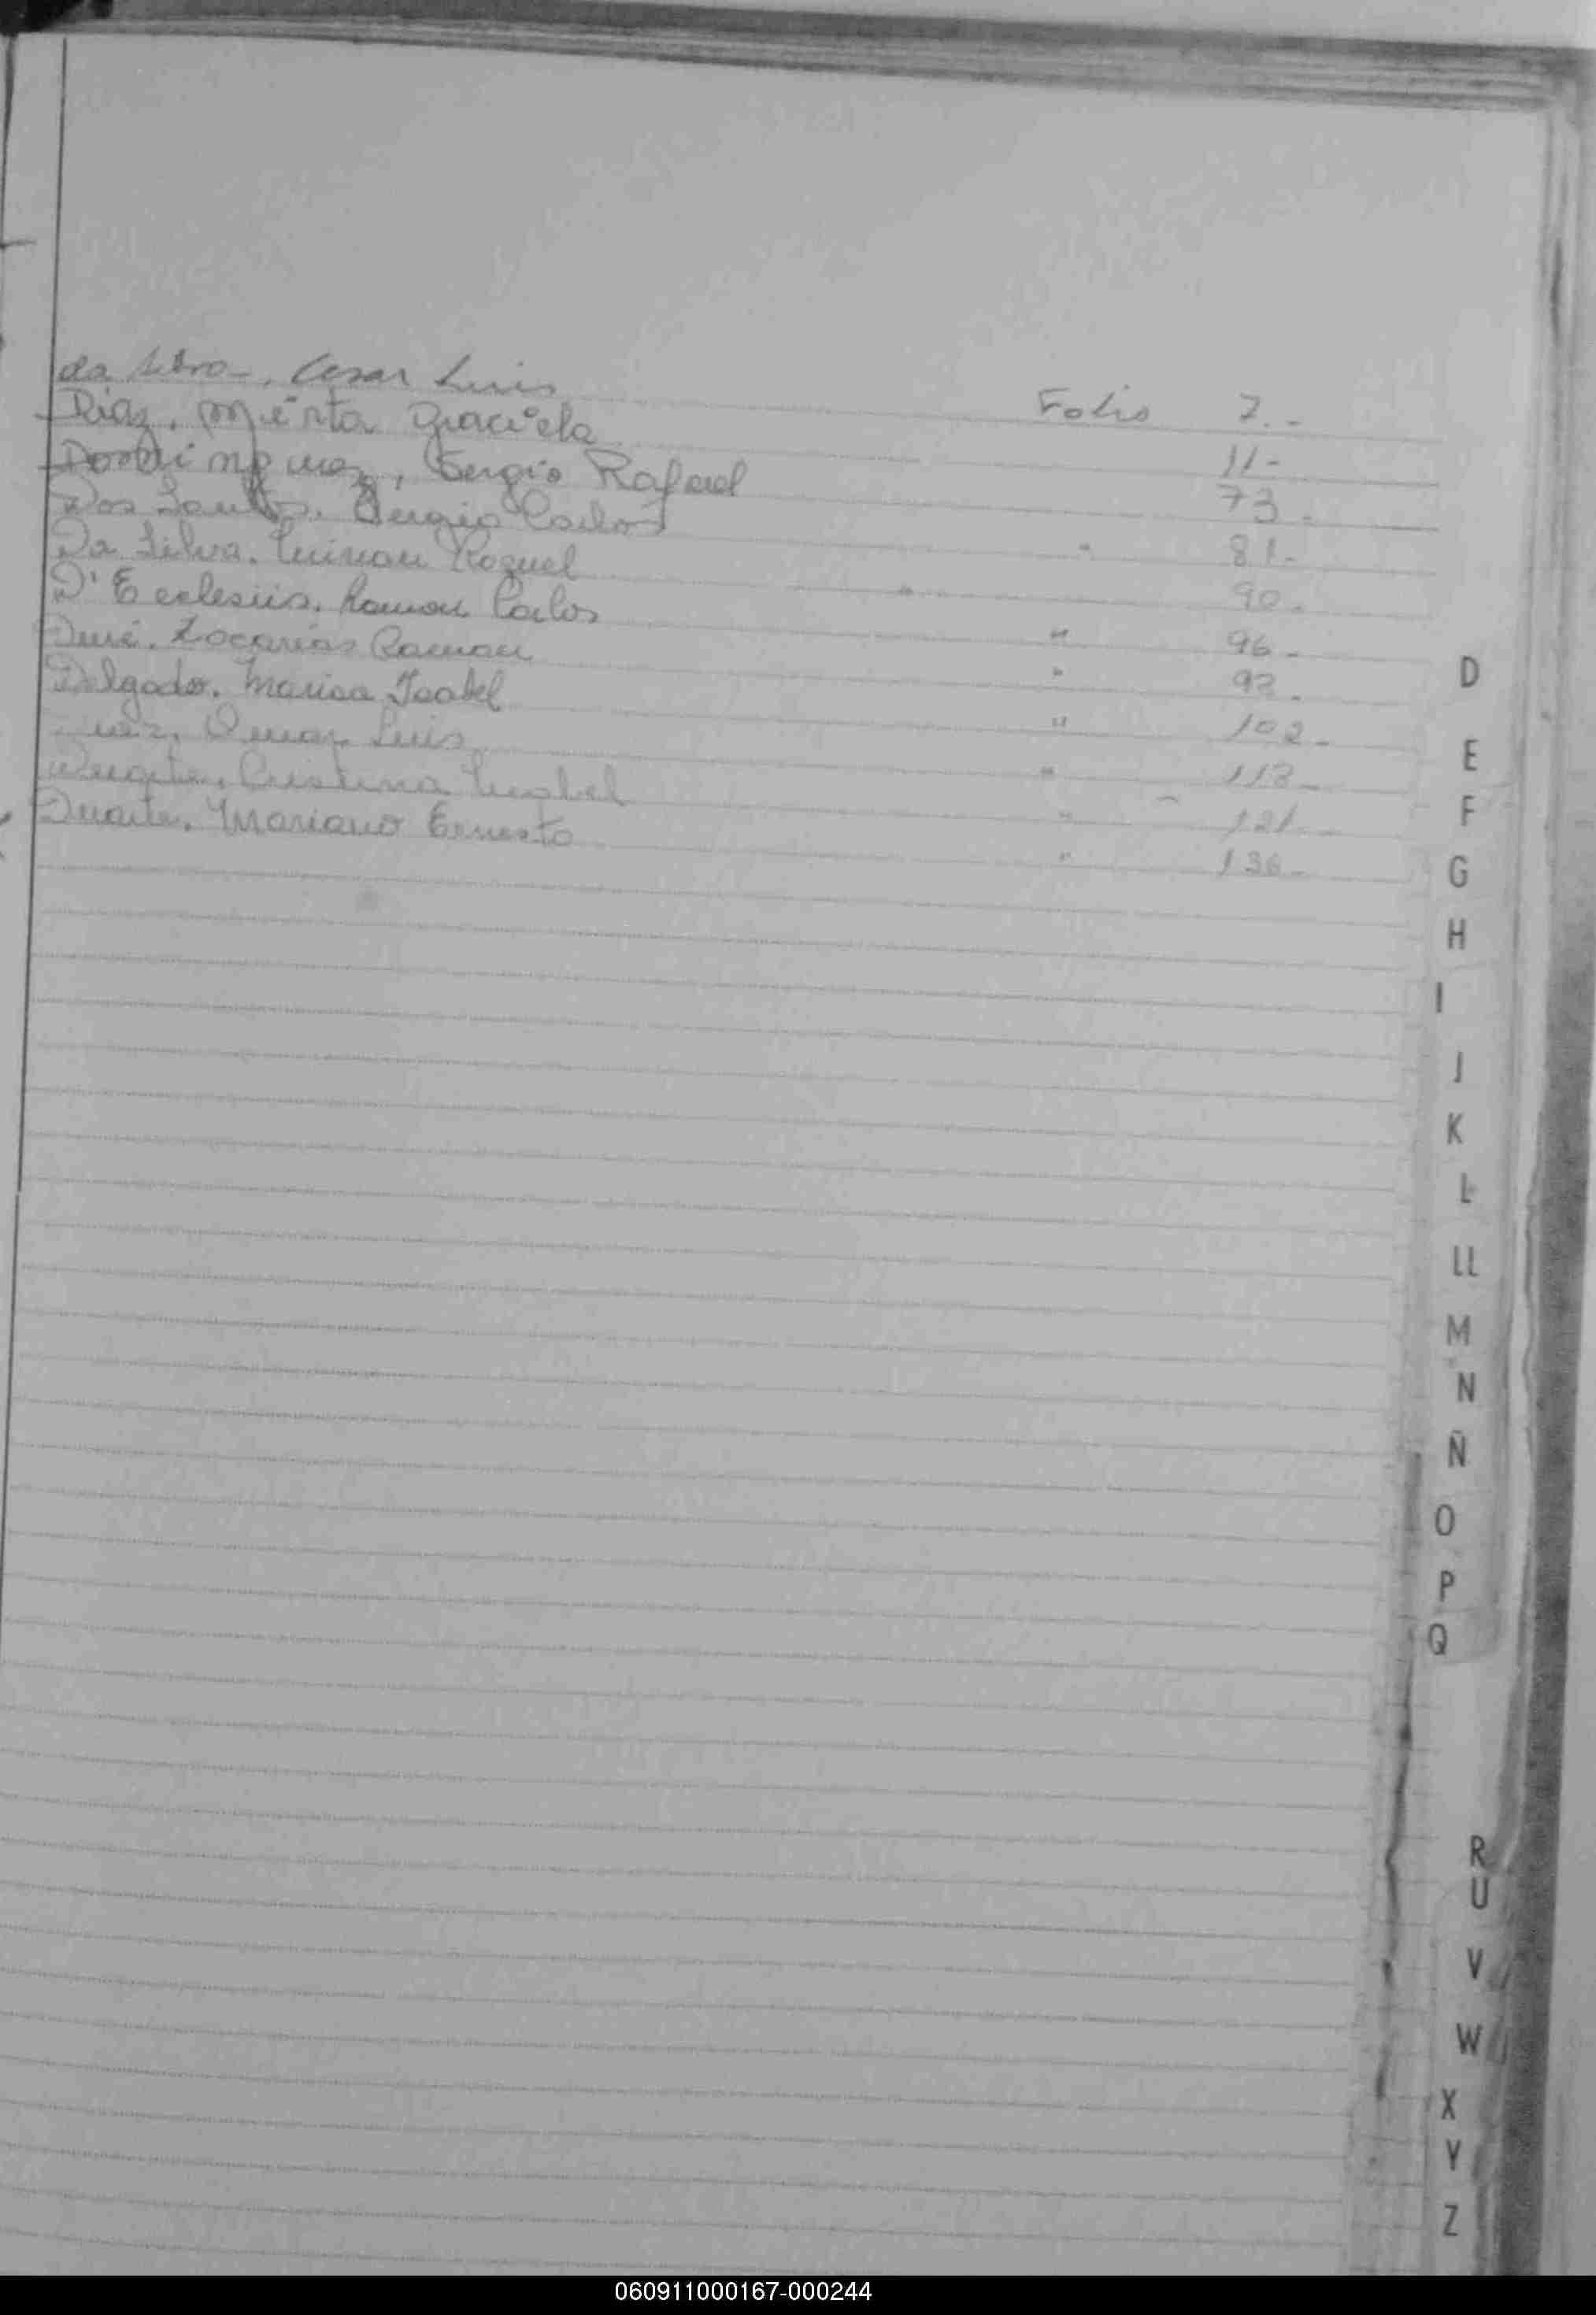 da Silva, Cesar Luis Folio 7.-
Diaz, Mirta Graciela 11-
Dominguez, Sergio Rafael 73-
Dos Santos, Sergio Carlos " 81-
Da Silva, Miriam Raquel " 90-
D'Ecclesiis, Ramon Carlos " 96-
Zacarias Ramon " 92-
Delgado, Marisa Isabel " 102-
Omar Luis " 113-
Cristina " 121-
Duarte, Mariano Ernesto " 136-
D
E
F
G
H
I
J
K
L
LL
M
N
Ñ
O
P
Q
R
U
V
W
X
Y
Z
060911000167-000244